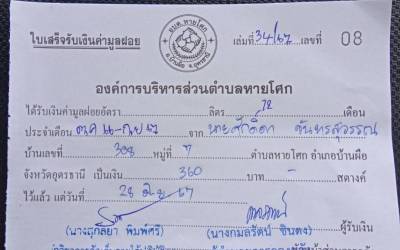 ใบเสร็จรับเงินค่ามูลฝอย เล่มที่ 34/67 เลขที่ 08
อบต.หายโศก
อ.บ้านผือ จ.อุดรธานี
องค์การบริหารส่วนตำบลหายโศก
ได้รับเงินค่ามูลฝอยอัตรา ลิตร 12 เดือน
ประจำเดือน ต.ค 66-ก.ย 67 จาก นายศักดิ์ดา จันทรสุวรรณ์
บ้านเลขที่ 308 หมู่ที่ 7 ตำบลหายโศก อำเภอบ้านผือ
จังหวัดอุดรธานี เป็นเงิน 360 บาท สตางค์
ไว้แล้ว แต่วันที่ 28 มิ.ย 67
ผู้รับเงิน
(นางสุกัลยา พิมพ์ศรี) (นางกมลรัตน์ ชินดง)